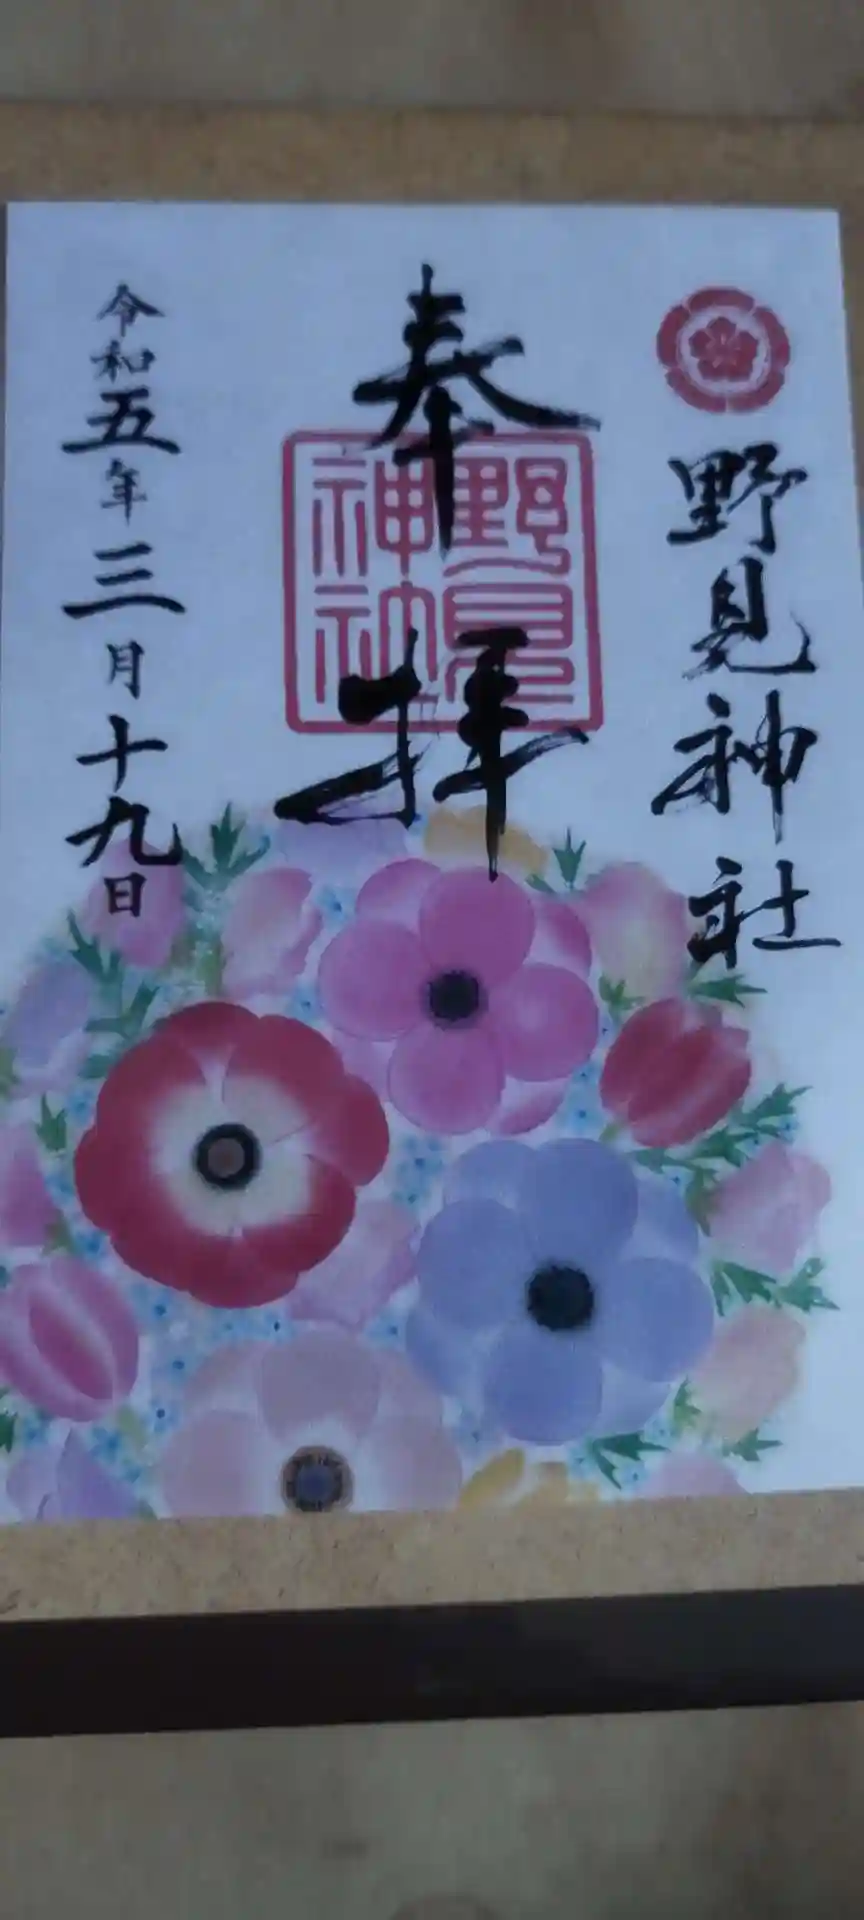 野見神社
奉拝
野見
神社
令和五年三月十九日